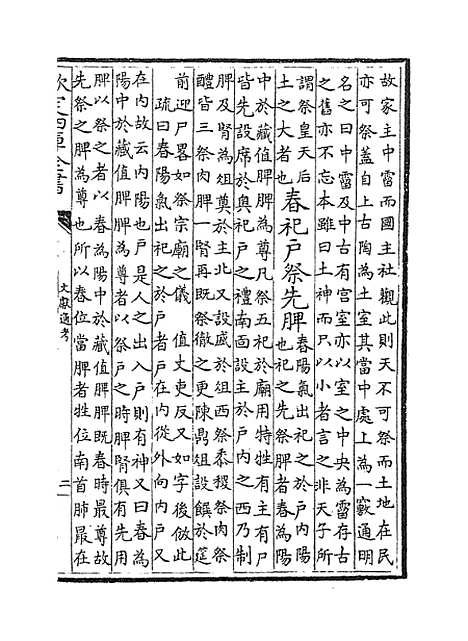 故家主中霤而國主社觀此則天不可祭而土地在民
亦可祭蓋自上古陶為土室其當中處上為一竅通明
名之曰中霤及中古有宫室亦以室之中央為霤存古
之舊亦不忘本雖曰土神而只以小者言之非天子所
謂祭皇天后土之大者也
春祀户祭先脾春陽氣出祀之於户内陽也祀之先祭脾者春為陽
中於藏值脾脾為尊凡祭五祀於廟用特牲有主有尸
皆先設席於奥祀户之禮南面設主於户内之西乃制
脾及腎為俎奠於主北又設盛於俎西祭黍稷祭肉祭
醴皆三祭肉脾一腎再既祭徹之更陳鼎俎設饌於筵
前迎尸畧如祭宗廟之儀 值丈吏反又如字後倣此
疏曰春陽氣出祀之於户者户在内從外向内户又
在内故云内陽也户是人之出入户則有神又曰春為
陽中於藏值脾脾為尊者以祭户之時脾腎俱有先用
脾以祭之者以春為陽中於藏值脾脾既春時最尊故
先祭之脾為尊也所以春位當脾者牲位南首肺最在
欽定四庫全書
文獻通考
二